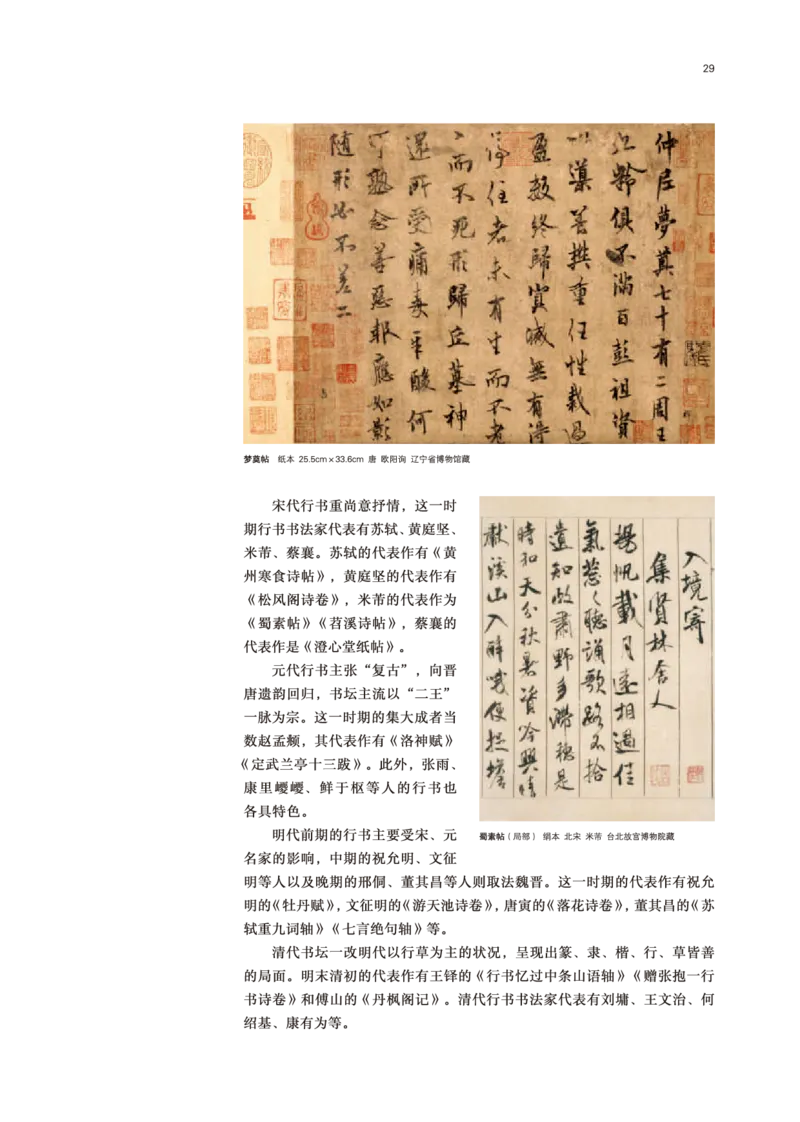 29
仲尼梦奠七十有二周王
九龄俱不满百彭祖资
以导善摄重任性裁过
盈数终归冥灭无有得
停住者未有生而不老
而不死形归丘墓神
还所受痛毒辛酸何
可熟念善恶报应如影
随形必不差二
梦奠帖 纸本 25.5cm×33.6cm 唐 欧阳询 辽宁省博物馆藏
宋代行书重尚意抒情，这一时
期行书书法家代表有苏轼、黄庭坚、
米芾、蔡襄。苏轼的代表作有《黄
州寒食诗帖》，黄庭坚的代表作有
《松风阁诗卷》，米芾的代表作为
《蜀素帖》《苕溪诗帖》，蔡襄的
代表作是《澄心堂纸帖》。
元代行书主张“复古”，向晋
唐遗韵回归，书坛主流以“二王”
一脉为宗。这一时期的集大成者当
数赵孟頫，其代表作有《洛神赋》
《定武兰亭十三跋》。此外，张雨、
康里巎巎、鲜于枢等人的行书也
各具特色。
入境寄
集贤林舍人
扬帆载月远相过佳
气葱〻听诵歌路不拾
遗知政肃野多滞穗是
时和天分秋暑资吟兴晴
献溪山入醉哦便捉蟾
蜀素帖（局部） 绢本 北宋 米芾 台北故宫博物院藏
明代前期的行书主要受宋、元
名家的影响，中期的祝允明、文征
明等人以及晚期的邢侗、董其昌等人则取法魏晋。这一时期的代表作有祝允
明的《牡丹赋》，文征明的《游天池诗卷》，唐寅的《落花诗卷》，董其昌的《苏
轼重九词轴》《七言绝句轴》等。
清代书坛一改明代以行草为主的状况，呈现出篆、隶、楷、行、草皆善
的局面。明末清初的代表作有王铎的《行书忆过中条山语轴》《赠张抱一行
书诗卷》和傅山的《丹枫阁记》。清代行书书法家代表有刘墉、王文治、何
绍基、康有为等。